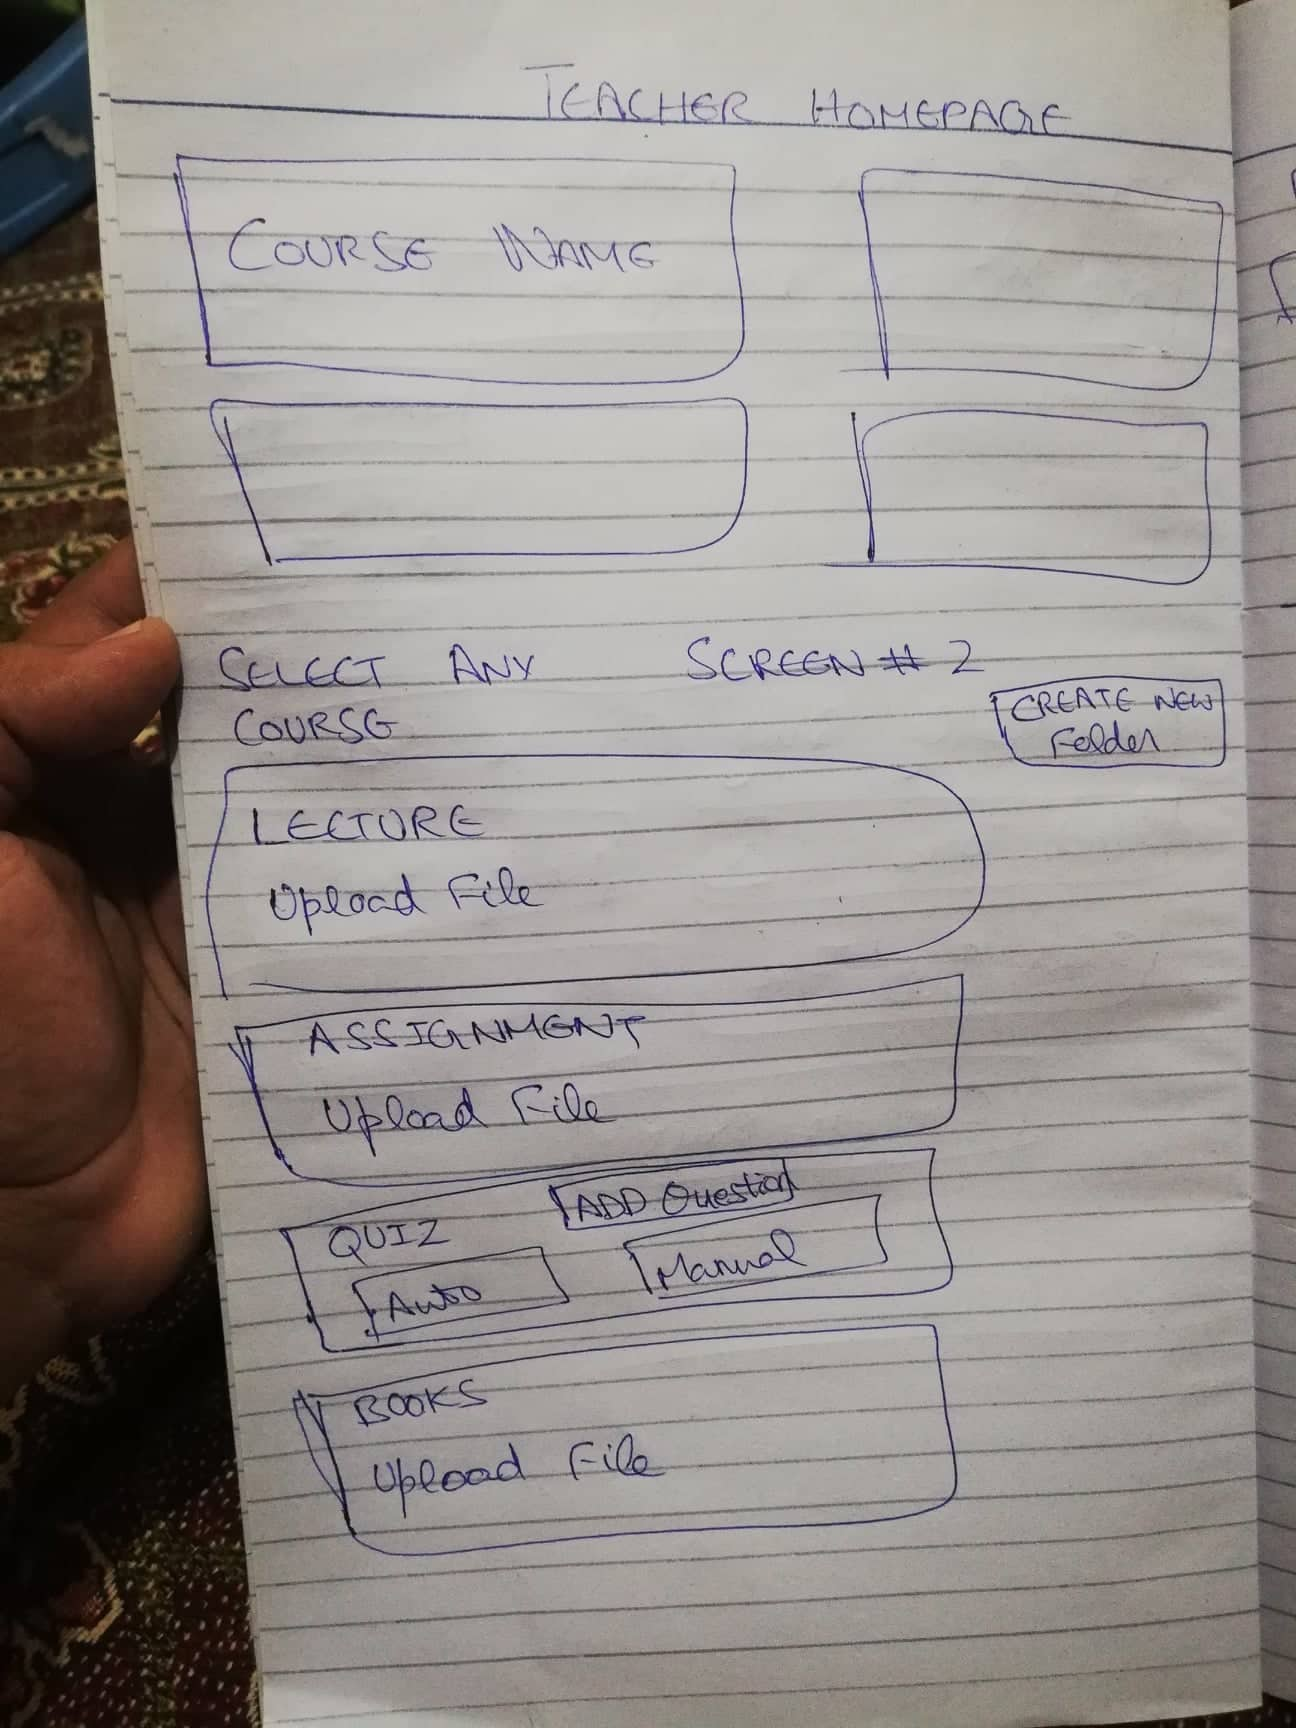 TEACHER HOMEPAGE
COURSE NAME
SELECT ANY SCREEN # 2
COURSE
CREATE NEW
Folder
LECTURE
Upload File
ASSIGNMENT
Upload File
ADD Question
QUIZ
Auto Manual
BOOKS
Upload File